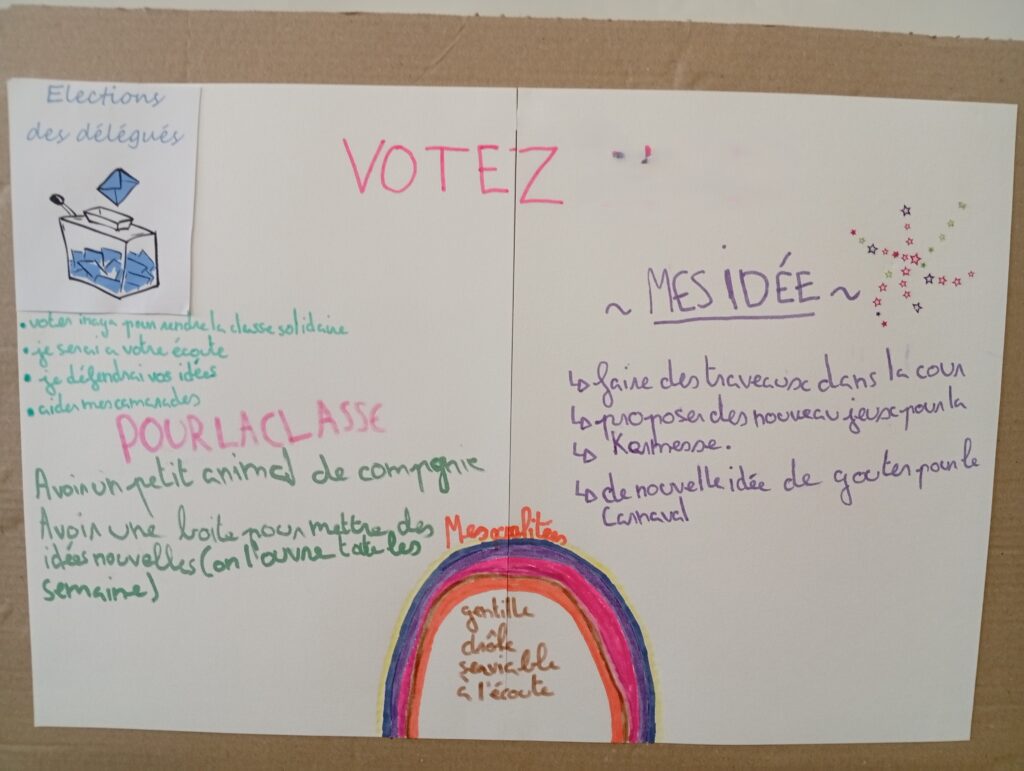 Elections
des délégués
VOTEZ
• voter inaya pour rendre la classe solidaire
• je serai a votre écoute
• je défendrai vos idées
• aider mes camarades
POUR LA CLASSE
Avoir un petit animal de compgnie
Avoir une boite pour mettre des
idées nouvelles (on l'ouvre toute les
semaine)
~ MES IDÉE ~
↳ faire des traveaux dans la cour
↳ proposer des nouveau jeux pour la
↳ Kermesse.
↳ de nouvelle idée de gouter pour le
Carnaval
Mes qualitées
gentille
drôle
serviable
à l'écoute